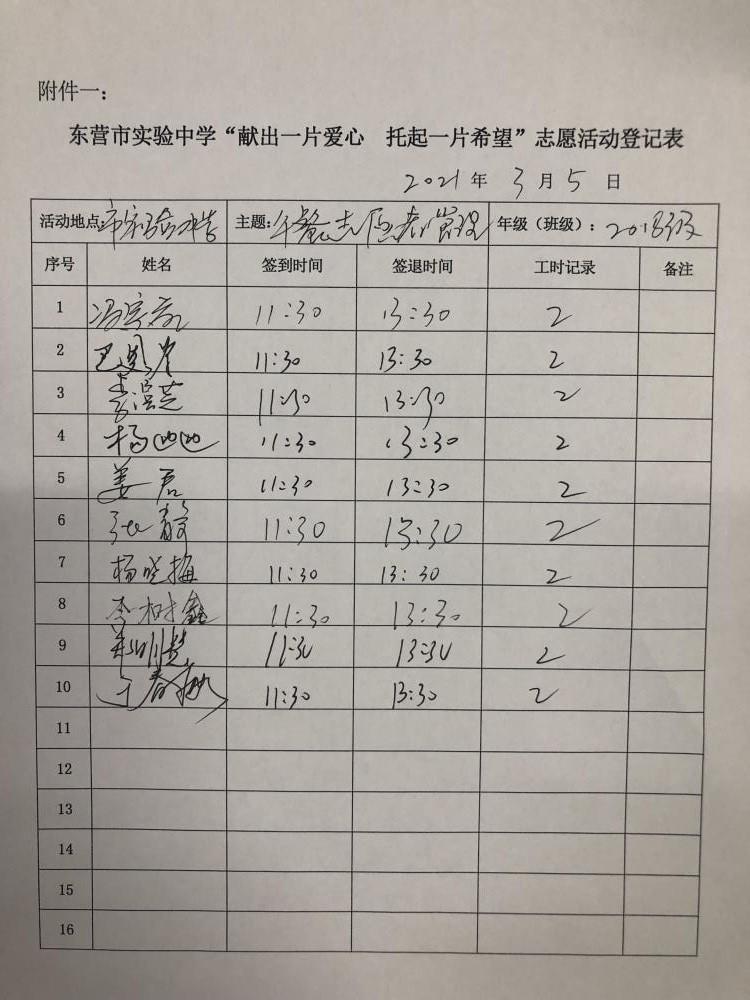 附件一：
东营市实验中学“献出一片爱心 托起一片希望”志愿活动登记表
2021 年 3 月 5 日
活动地点：市实验中学 主题：午餐志愿者管理 年级（班级）：2018级
序号 姓名 签到时间 签退时间 工时记录 备注
1 11:30 13:30 2
2 11:30 13:30 2
3 李滨芝 11:30 13:30 2
4 杨 11:30 13:30 2
5 姜君 11:30 13:30 2
6 11:30 13:30 2
7 杨晓梅 11:30 13:30 2
8 李树鑫 11:30 13:30 2
9 11:30 13:30 2
10 11:30 13:30 2
11
12
13
14
15
16